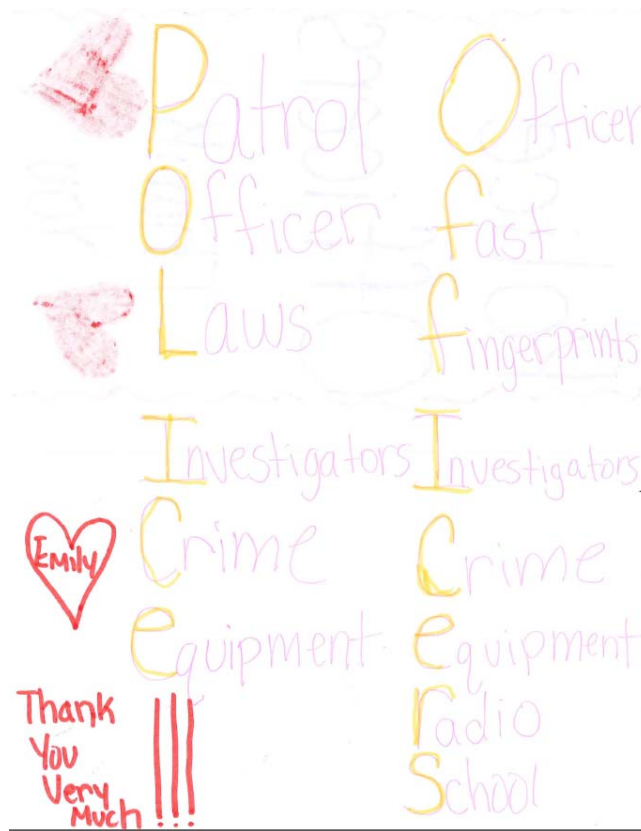 Patrol
Officer
Laws
Investigators
Crime
equipment
Officer
fast
fingerprints
Investigators
Crime
equipment
radio
School
Emily
Thank
You
Very
Much !!!